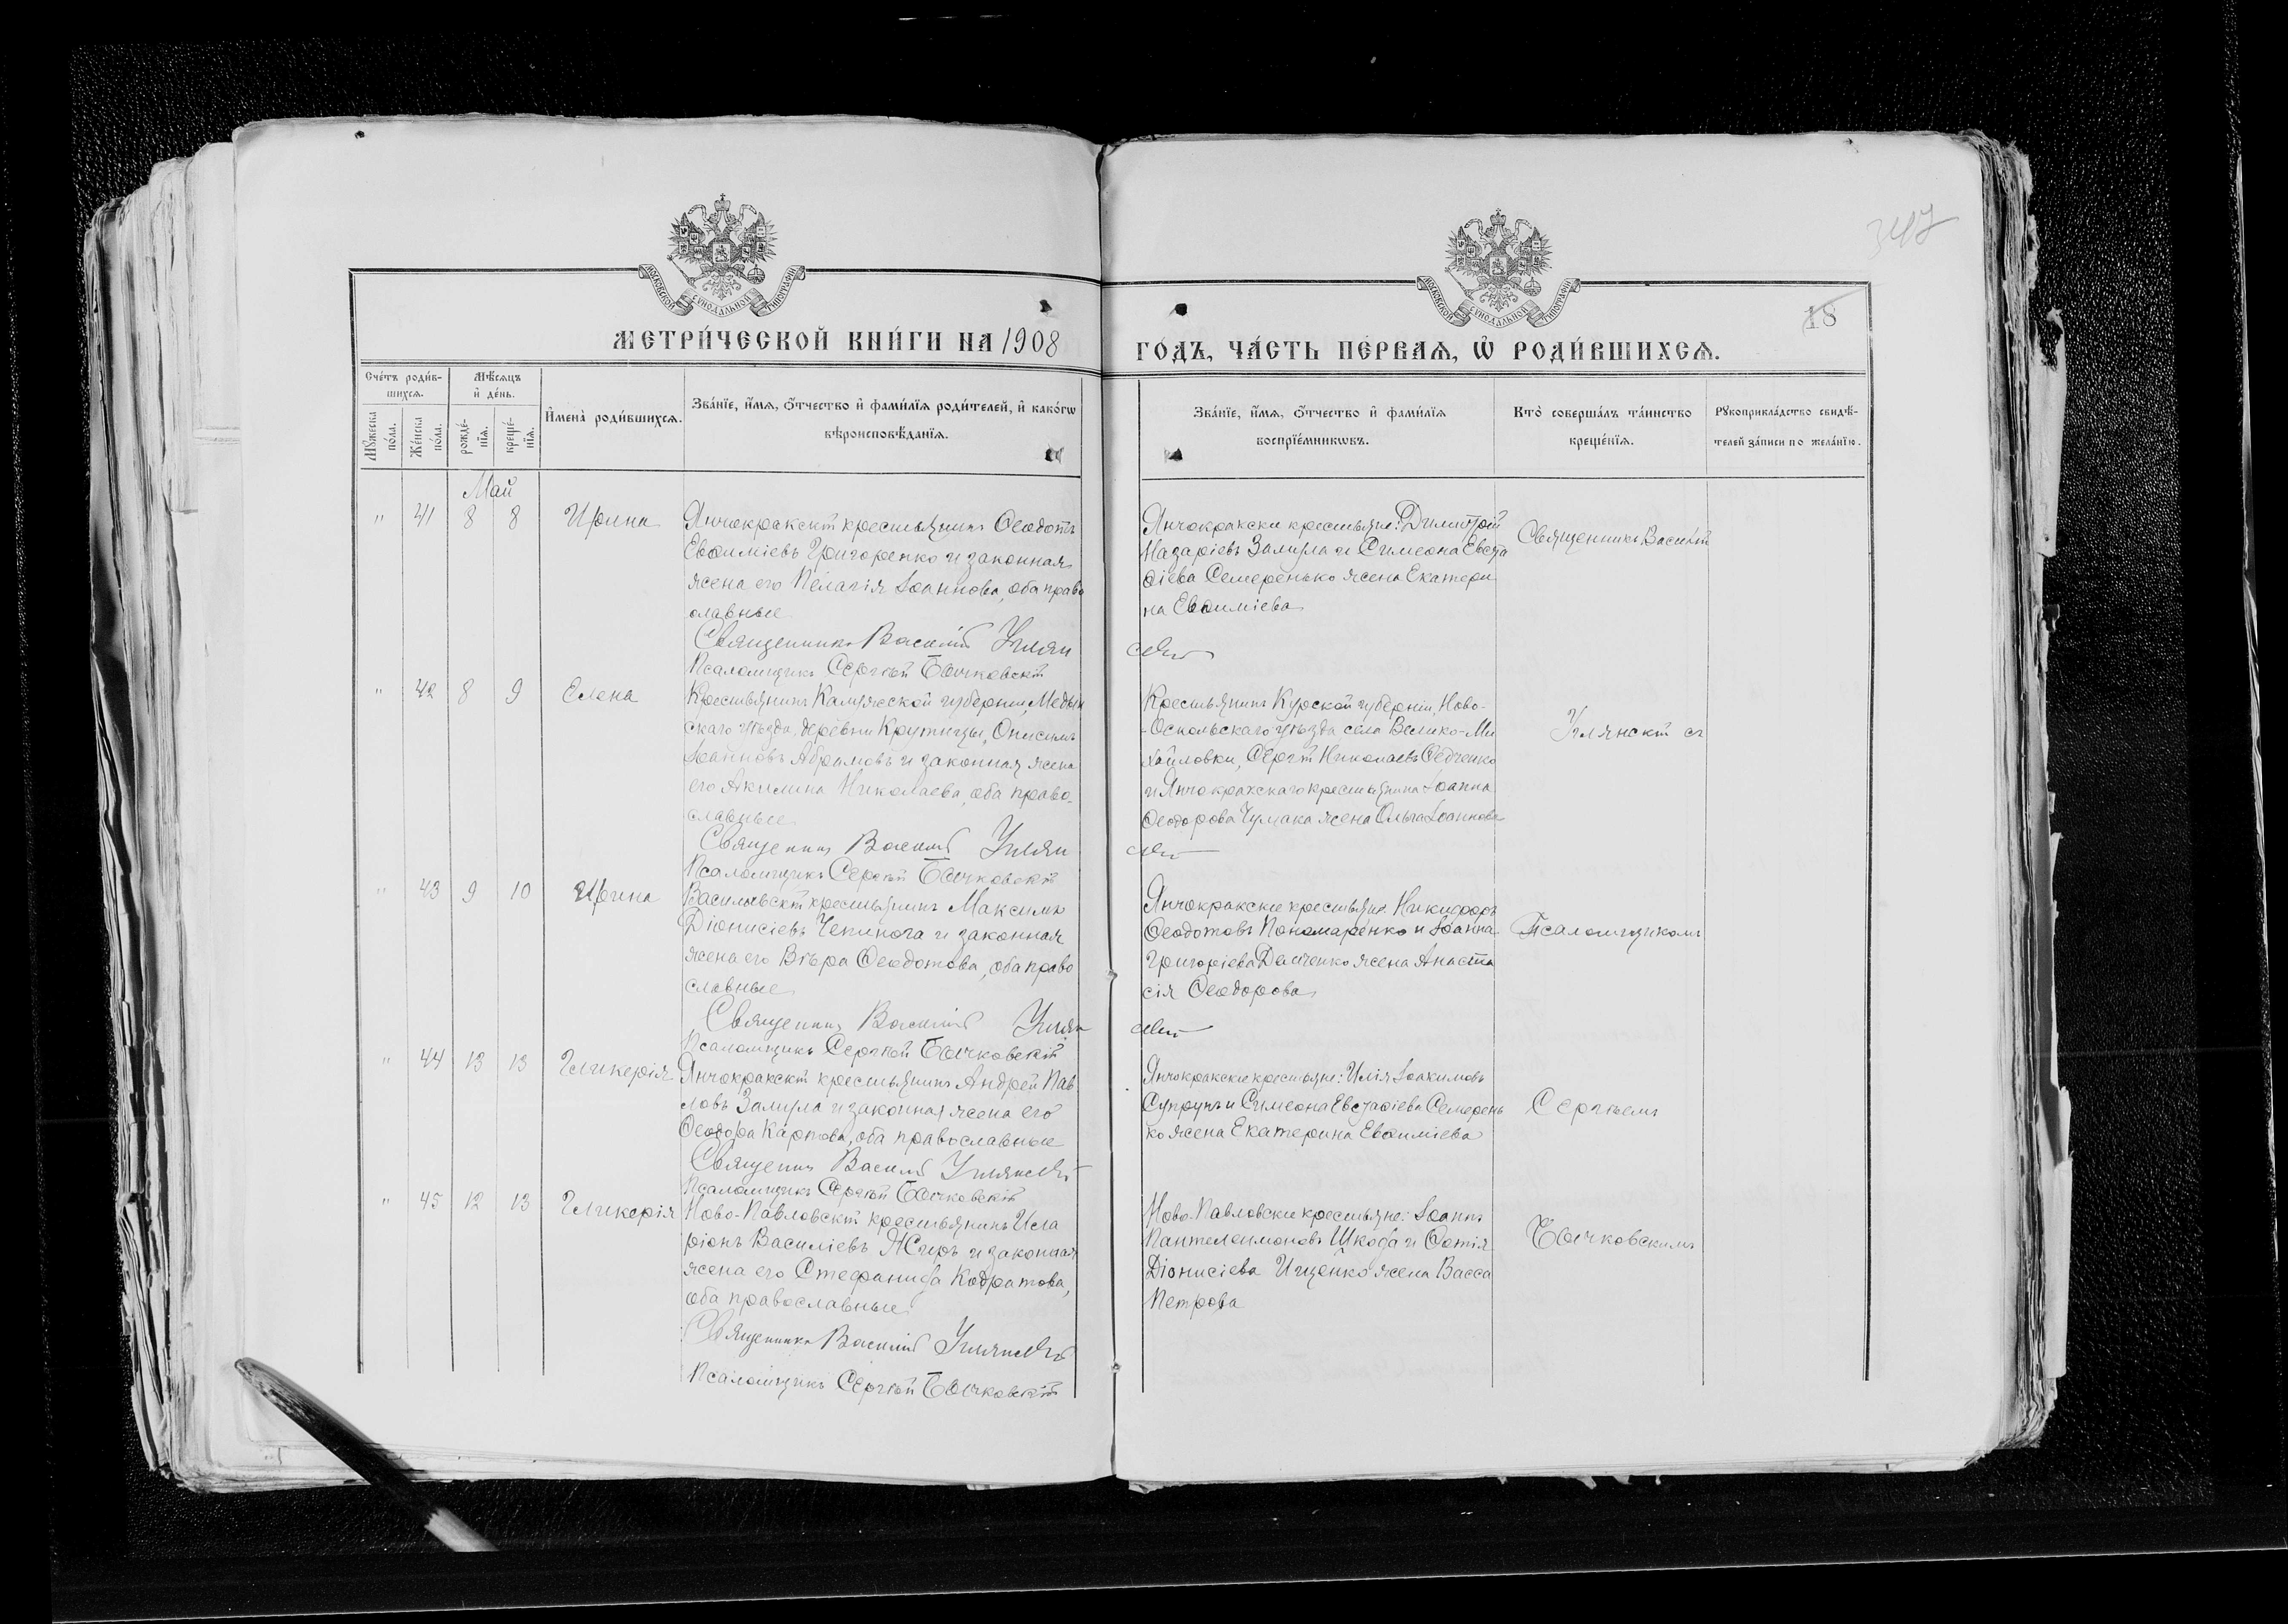 347
МОСКОВСКОЙ СѴНОДАЛЬНОЙ ТИПОГРАФІИ
МОСКОВСКОЙ СѴНОДАЛЬНОЙ ТИПОГРАФІИ
18
МЕТРИ́ЧЕСКОЙ КНИ́ГИ НА 1908
ГО́ДЪ, ЧА́СТЬ ПЕ́РВАѦ, Ѡ҆ РОДИ́ВШИХСѦ.
Сче́тъ роди́в-
шихсѧ.
Мѣ́сѧцъ
и҆ де́нь.
И҆мена̀ роди́вшихсѧ.
Зва́нїе, и҆́мѧ, ѻ҆́тчество и҆ фами́лїѧ роди́телей, и҆ како́гѡ
вѣроисповѣ́данїѧ.
Мꙋ́жеска
по́ла.
Же́нска
по́ла.
рожде́-
нїѧ.
креще́-
нїѧ.
Зва́нїе, и҆́мѧ, ѻ҆́тчество и҆ фами́лїѧ
воспрїе́мникѡвъ.
Кто̀ соверша́лъ та́инство
креще́нїѧ.
Рꙋкоприкла́дство свидѣ́-
телей за́писи по жела́нїю.
Май
" 41 8 8 Ирина
Янчокракскій крестьянинъ Ѳеодотъ
Евѳиміевъ Григоренко и законная
жена его Пелагія Іоаннова, оба право
славные
Священникъ Василій Углян
Псаломщикъ Сергѣй Бычковскій
Янчокракскіе крестьяне: Димитрій
Назаріевъ Залула и Симеона Евста
ѳіева Семеренько жена Екатери
на Евѳиміева
скій
Священникъ Василій
" 42 8 9 Елена
Крестьянинъ Калужской губерніи, Медын
скаго уѣзда, деревни Крутицы, Онисимъ
Іоанновъ Абрамовъ и законная жена
его Акилина Николаева, оба право-
славные
Священникъ Василій Углян
Псаломщикъ Сергѣй Бычковскій
Крестьянинъ Курской губерніи, Ново-
-Оскольскаго уѣзда села Велико-Ми
хайловки, Сергѣй Николаевъ Федченко
и Янчокракскаго крестьянина Іоанна
Ѳеодорова Чумака жена Ольга Іоаннова
скій
Углянскій съ
" 43 9 10 Ирина
Васильевскій крестьянинъ Максимъ
Діонисіевъ Чепинога и законная
жена его Вѣра Ѳеодотова, оба право
славные
Священникъ Василій Углян
Псаломщикъ Сергѣй Бычковскій
Янчокракскіе крестьяне: Никифоръ
Ѳеодотовъ Пономаренко и Іоанна
Григоріева Демченко жена Анаста
сія Ѳеодорова
скій
Псаломщикомъ
" 44 13 13 Гликерія
Янчокракскій крестьянинъ Андрей Пав
ловъ Залула и законная жена его
Ѳеодора Карпова, оба православные
Священникъ Василій Углянскій
Псаломщикъ Сергѣй Бычковскій
Янчокракскіе крестьяне: Илія Іоакимовъ
Супрунъ и Симеона Евстаѳіева Семерень
ко жена Екатерина Евѳиміева
Сергѣемъ
" 45 12 13 Гликерія
Ново-Павловскій крестьянинъ Ила
ріонъ Василіевъ Жиръ и законная
жена его Стефанида Кодратова,
оба православные
Священникъ Василій Углянскій
Псаломщикъ Сергѣй Бычковскій
Ново-Павловскіе крестьяне: Іоаннъ
Пантелеимоновъ Шкода и Фотія
Діонисіева Ищенко жена Васса
Петрова
Бычковскимъ